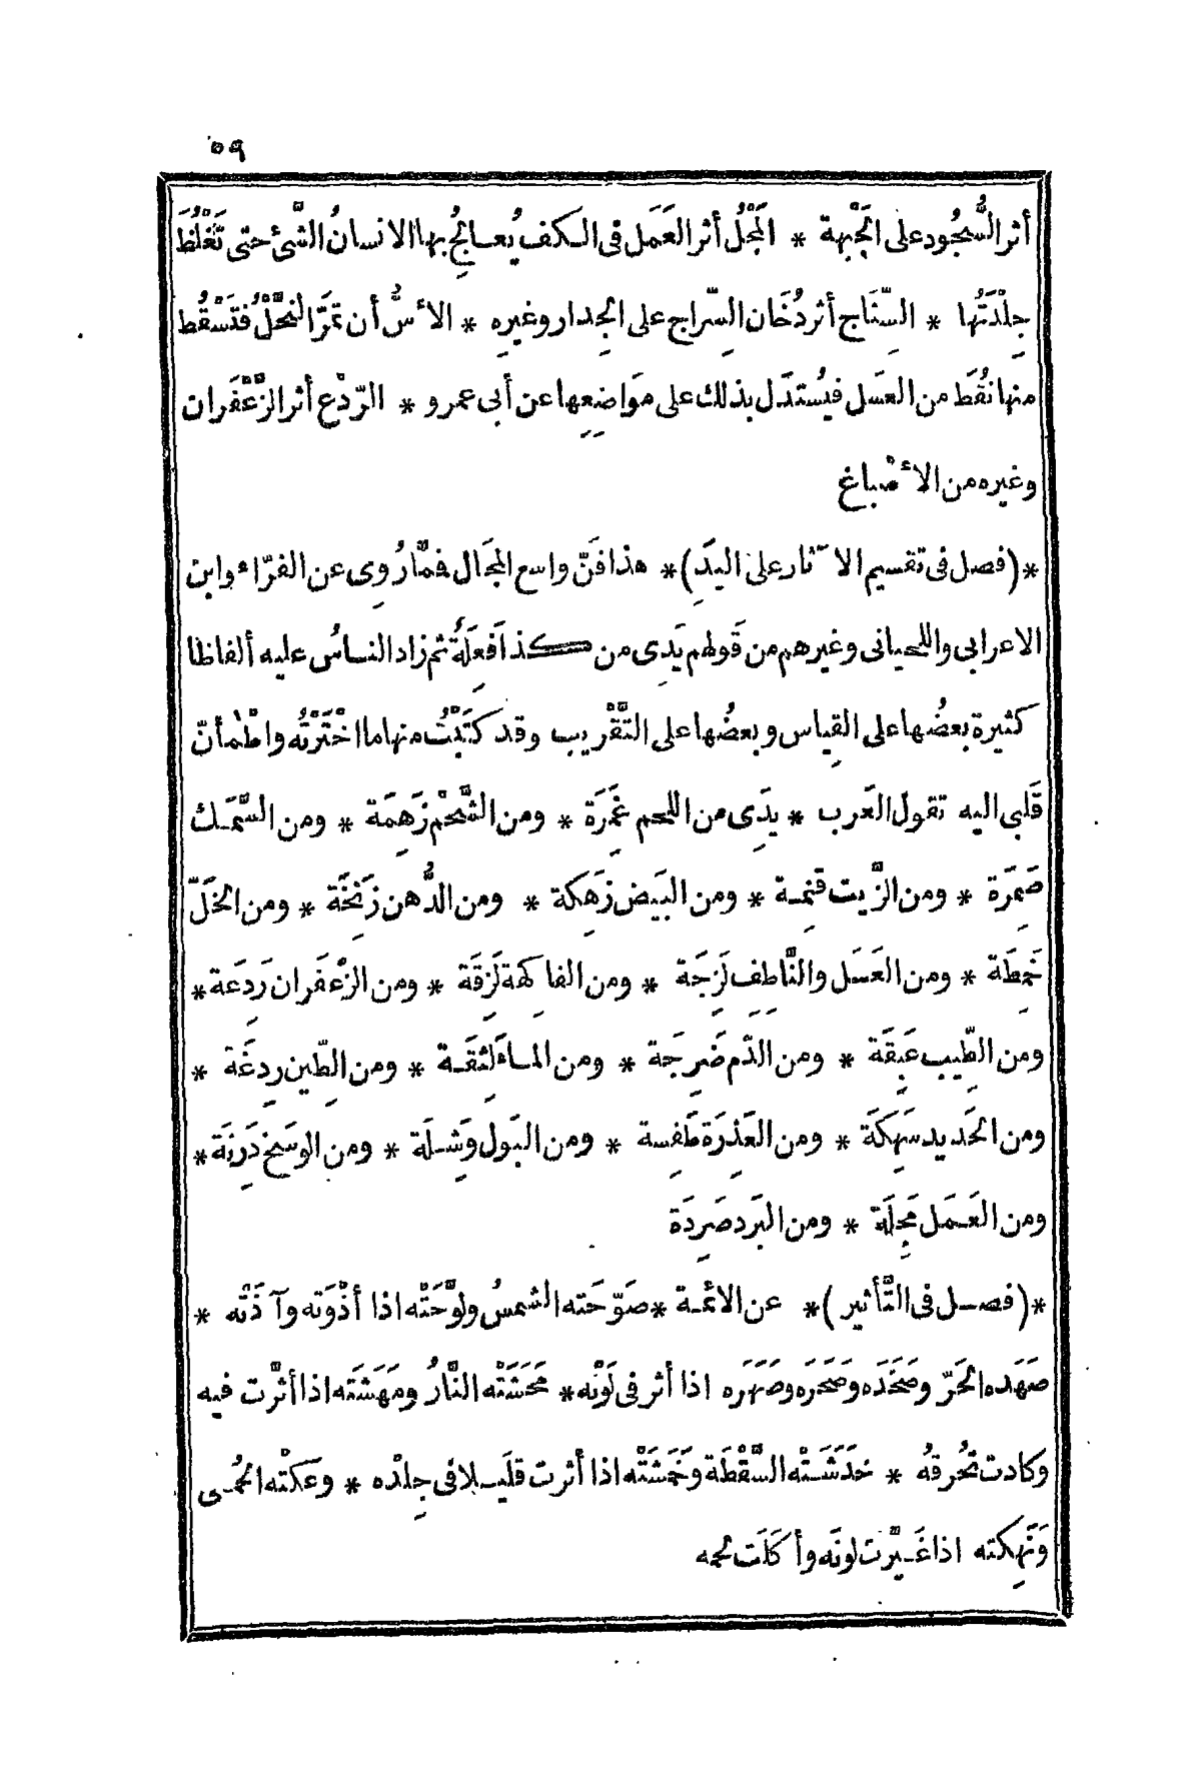 ٥٩
أثر السُّجُود على الجَبْهة * المَجْلُ أثر العَمَل فى الكف يُعالِجُ بها الانسانُ الشَّئ حتى تَغْلُظَ
جِلْدَتُها * السِّنَاج أثر دُخَان السِّراج على الجِدار وغيرِه * الأُسُّ أن تمرَّ النَّحْلُ فتَسْقُط
منها نُقَط من العَسل فيُستَدَل بذلك على مَواضِعِها عن أبى عمرو * الرَّدْع أثر الزَّعْفَران
وغيره من الأَصْباغ
*(فصل فى تقسيم الآثار على اليَدِ)* هذا فَنّ واسع المَجَال فمَّا رُوِى عن الفرّاء وابن
الاعرابى واللحيانى وغيرهم من قَولهم يَدِى من كذا فَعِلَةٌ ثم زاد الناسُ عليه ألفاظا
كثيرة بعضُها على القِياس وبعضُها على التَّقْريب وقد كَتَبْتُ منها ما اخْتَرْتُه واطْمأنّ
قَلبى اليه تقول العَرب * يَدِى من اللحم غَمِرَة * ومن الشَّحْم زَهِمَة * ومن السَّمَك
صَمِرَة * ومن الزَّيت قَنِمة * ومن البَيَض زَهِكة * ومن الدُّهن زَنِخَة * ومن الخَلّ
خَمِطَة * ومن العَسَل والنَّاطِفِ لَزِجَة * ومن الفاكِهة لَزِقَة * ومن الزعْفَران رَدِعَة *
ومن الطِّيب عَبِقَة * ومن الدَّم ضَرِجَة * ومن الماءَ لَثِقَة * ومن الطِّين رَدِغَة *
ومن الحَديد سَهِكَة * ومن العَذِرَة طَفِسة * ومن البَول وَشِلَة * ومن الوسَخ دَرِنَة *
ومن العَمَل مَجِلَة * ومن البَرد صَرِدَة
*(فصل فى التَّأثير)* عن الائمة * صَوَّحَته الشمسُ ولوَّحَتْه اذا أذْوَته وآذَتْه *
صَهَده الحَرّ وصَخَدَه وصَحَرَه وصَهَرَه اذا أثر فى لَوْنه * مَحَشَتْه النَّارُ ومَهَشَتَه اذا أثَّرت فيه
وكادت تُحرِقهُ * خَدَشَتْه السَّقْطَة وخَمَشَتْه اذا أثرت قليلا فى جِلْده * وعَكتْه الحُمى
وَنَهِكته اذا غَيَّرت لونَه وأكَلَت لحمه